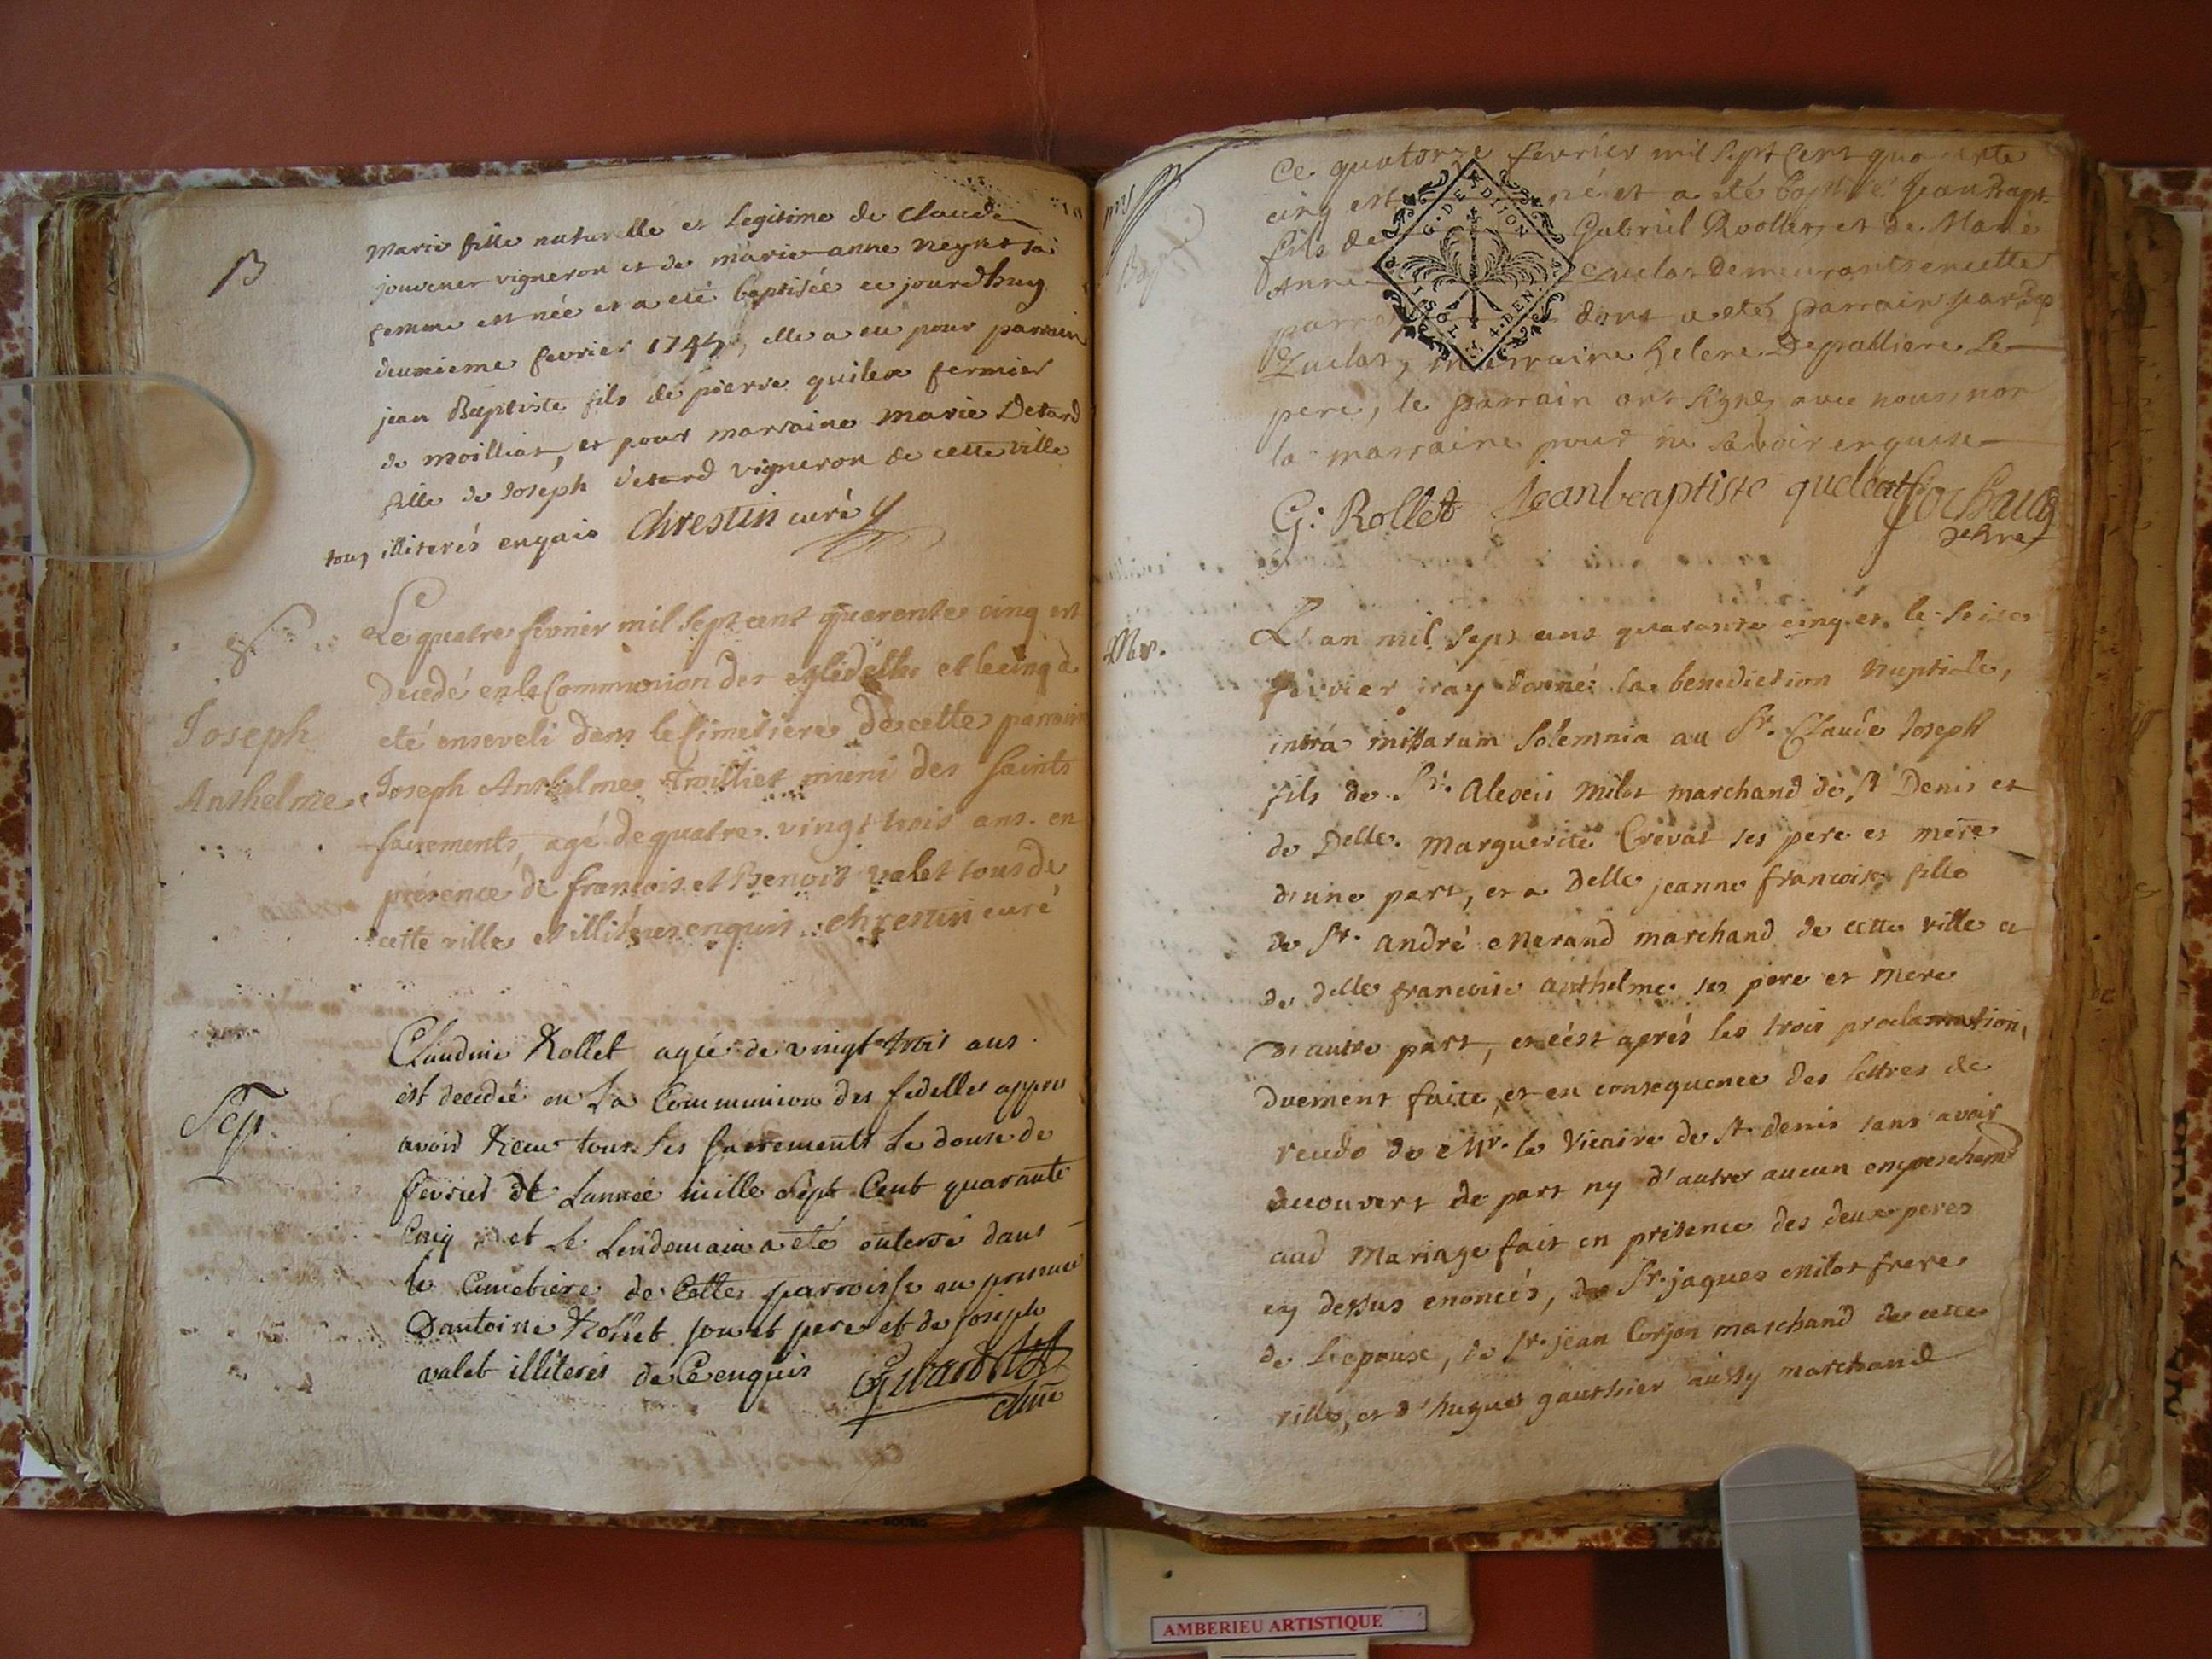 B
Marie fille naturelle et Legitime de Claude
jouvener vigneron et de marie anne neyret sa
femme est née et a eté baptisée ce jourdhuy
deuxieme fevrier 1745, elle a eu pour parrain
jean Baptiste fils de pierre quilex fermier
de moilliat, et pour marraine marie Detard
fille de Joseph detard vigneron de cette ville
tous illiterés enquis Chrestin curé
S
Joseph
Anthelme
Le quatre fevrier mil sept cent quarente cinq est
decedé en la Communion des et le cinq a
eté enseveli dans le Cimetiere de cette parroisse
Joseph Anthelme Troilliet muni des saints
sacrements, agé de quatre vingt trois ans en
présence de francois et Benoit valet tous de
cette ville et illiterés enquis chrestin curé
Sep
Claudine Rollet agée de vingt trois ans
est decedée en La Communion des fidelles apprès
avoir Receu tous ses sacrements Le douse de
fevrier de Lannée mille sept Cent quarante
Cinq et Le Lendemain a eté enterré dans
le Cimetiere de Cette parroisse en presence
Dantoine Rollet son et pere et de joseph
valet illiterés de Ce enquis
Ce quatorze fevrier mil sept Cent quarente
cinq est né et a eté baptisé Jean Bapt
fils de Gabriel Roollet et de Marie
Anne Quelat demeurants en cette
parro dont a eté parrain jean Bap
Quelat, marraine helene Depalliere Le
pere, le parrain ont signé avec nous, non
la marraine pour ne savoir enquise
G. DE DIJON
4. DEN.
G: Rollet Jean baptiste queleat Cochaud
Mar.
L'an mil sept cens quarante cinq et le seise
fevrier j'ay donné la benediction nuptiale,
intrá missarum solemnia au Sr. Claude Joseph
fils de Sr. Alexis milot marchand de St Denis et
de Delle. Marguerite Crevat ses pere et mere
d'une part, et a delle jeanne francoise fille
de Sr. andré Merand marchand de cette ville et
de delle francoise anthelme ses pere et mere
d'autre part, et c'est aprés les trois proclamations
duement faite, et en consequence des lettres de
reudo de Mr. le Vicaire de St. denis sans avoir
decouvert de part ny d'autre aucun empeschement
aud Mariage fait en presence des deux peres
cy dessus enoncés, de Sr. jaques Milot frere
de L'epouse, de Sr. jean Corjon marchand de cette
ville, et d'hugues gauthier aussy marchand
AMBERIEU ARTISTIQUE